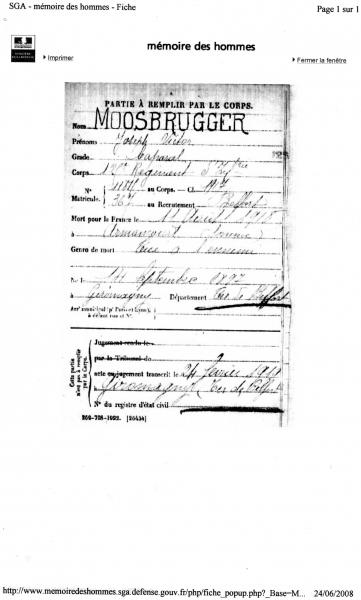 SGA - mémoire des hommes - Fiche
Page 1 sur 1
mémoire des hommes
Imprimer
Fermer la fenêtre
PARTIE À REMPLIR PAR LE CORPS.
Nom MOOSBRUGGER
Prénoms Joseph Victor
Grade Caporal
Corps Regiment d'
N° au Corps. — Cl. 1917
Matricule. 367 au Recrutement Belfort
Mort pour la France le 11 Août 1918
à Armancourt (Somme)
Genre de mort Tué à l'ennemi
Né le Septembre 1897
à Giromagny Département Ter. de Belfort
Arr¹ municipal (pʳ Paris et Lyon),
à défaut rue et N°.
Cette partie
n'est pas à remplir
par le Corps.
Jugement rendu le
par le Tribunal de
acte ou jugement transcrit le 24 février 1919
à Giromagny, Ter. de Belfort
N° du registre d'état civil
269-708-1922. [26434]
http://www.memoiredeshommes.sga.defense.gouv.fr/php/fiche_popup.php?_Base=M...
24/06/2008